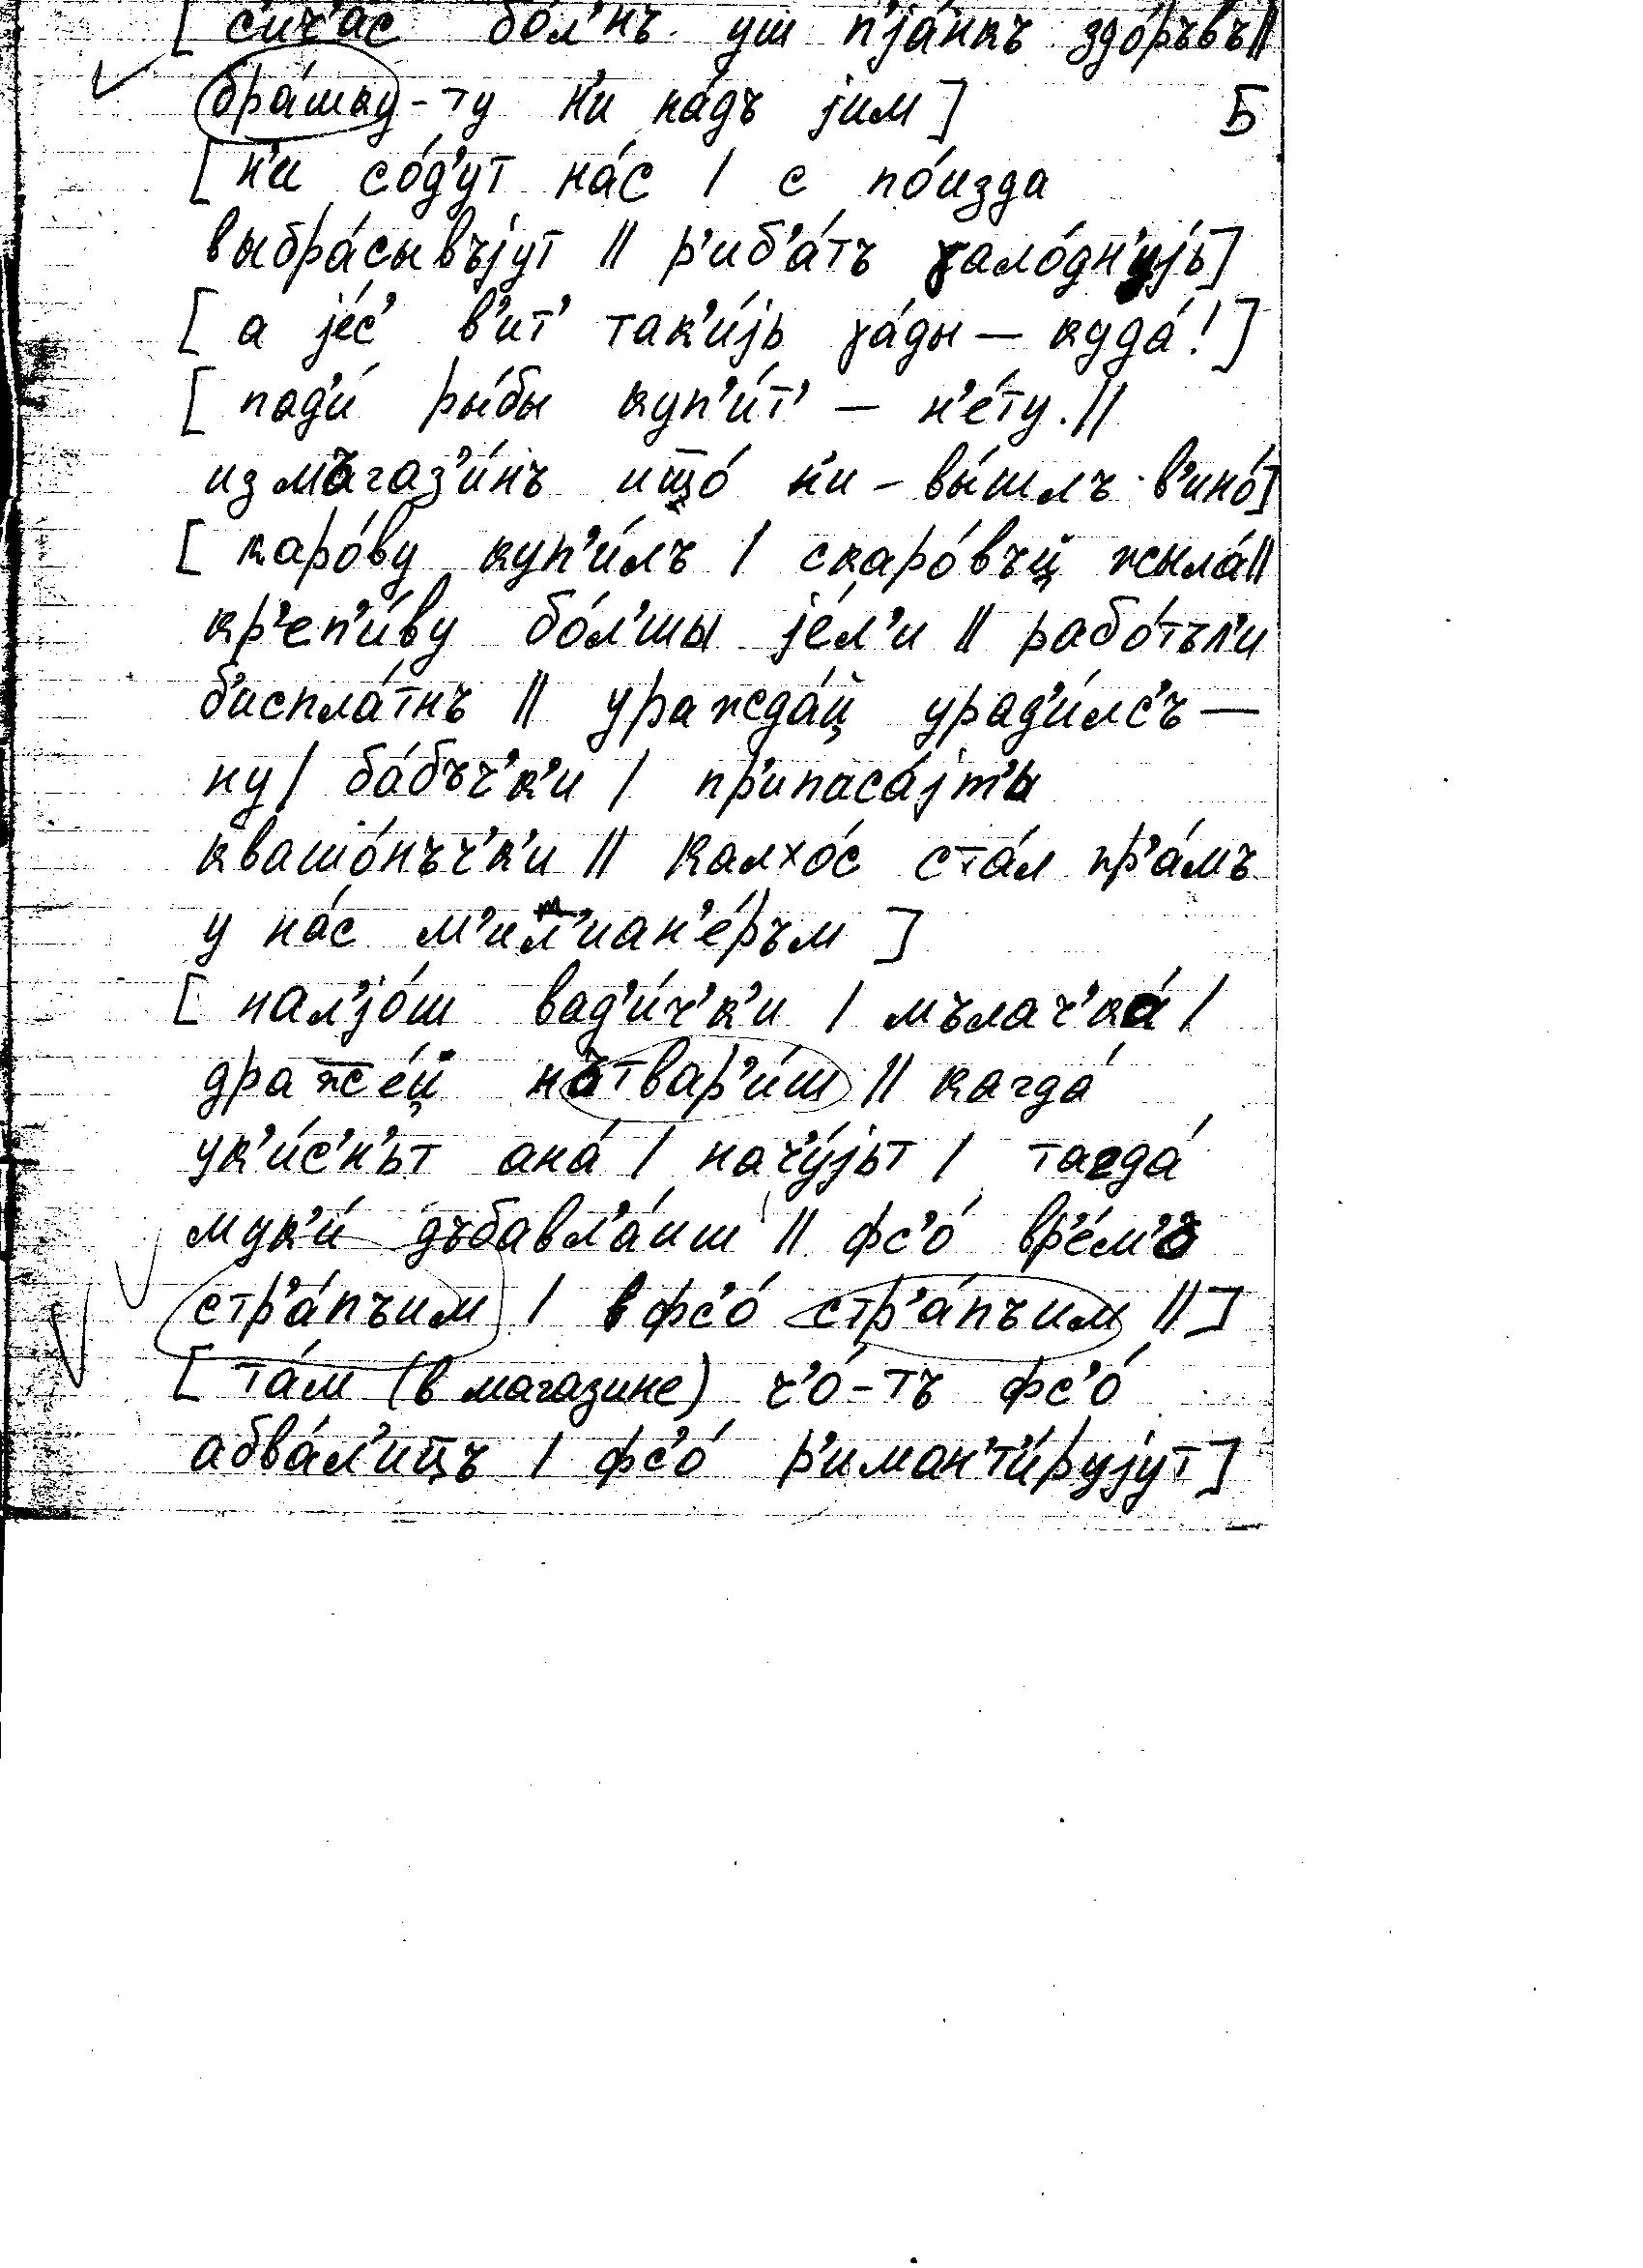 [ с'ич'а́с бо́л'нъ уш п'jа́нкъ здо́ръвъ ||
бра́шку-ту н'и на́дъ jим ]
Б
[ н'и со́д'ут на́с / с по́изда
выбра́сывъjут || р'иб'а́тъ γало́дн'иjь ]
[ а jе́с' в'ит' так'и́jь γа́ды — куда́! ]
[ пад'и́ ры́бы куп'и́т' — н'е́ту. ||
измъгаз'и́нъ ищо́ н'и - вы́шлъ в'ино́ ]
[ каро́ву куп'и́лъ / скаро́въй жыла́ ||
кр'еп'и́ву бо́л'шы jе́л'и || рабо́тъл'и
б'испла́тнъ || уражда́й урад'и́лс'ъ —
ну / ба́бъч'к'и / пр'ипаса́jт'ь
квашо́нъч'к'и || калхо́с ста́л пр'а́мъ
у на́с м'ил'иан'е́ръм ]
[ нал'jо́ш вад'и́ч'к'и / мълач'ка́ /
драже́й нътвар'и́ш || кагда́
ук'и́с'н'ьт ана́ / нач'у́jьт / тагда́
мук'и́ дъбавл'а́иш || фс'о́ вр'е́м'ъ
стр'а́пъим / фс'о́ стр'а́пъим || ]
[ та́м (в магазине) ч'о́-тъ фс'о́
абва́л'ицъ / фс'о́ р'иман'т'и́руjут ]